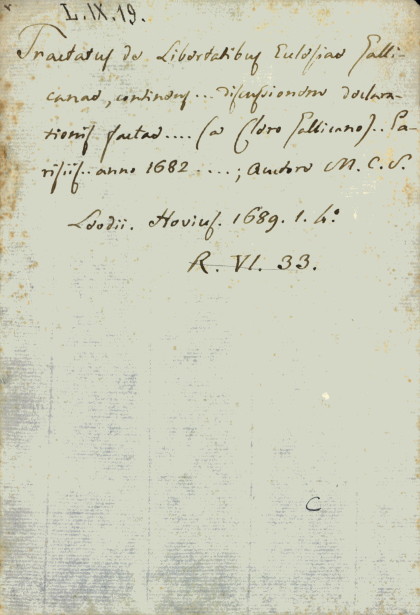 L.IX.19.
Tractatus de Libertatibus Ecclesiae Galli-
canae, continens... discussionem declara-
tionis factae.... (a Clero Gallicano).. Pa-
risiis.. anno 1682 ....; Autore M. C. S.
Leodii. Hovius. 1689. 1. 4.º
R. VI. 33.
C